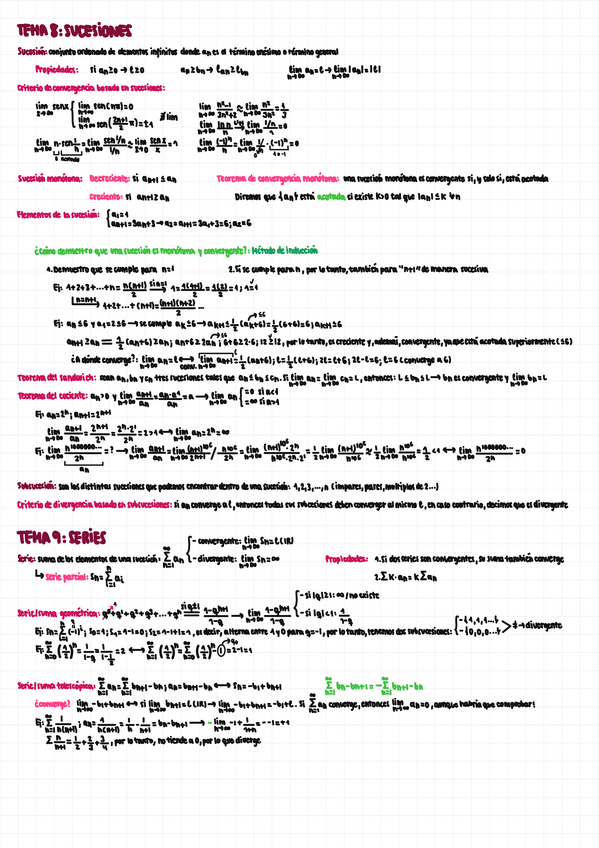 TEMA 8: SUCESIONES
Sucesión: conjunto ordenado de elementos infinitos donde an es el término enésimo o término general
Propiedades: si an≥0 → l≥0 an≥bn → lan≥lbn lim n→∞ an=l → lim n→∞ |an|=|l|
Criterio de convergencia basado en sucesiones:
lim x→∞ senx { lim n→∞ sen(nπ)=0
lim n→∞ n²-1/3n²+2 ≈ lim n→∞ n²/3n² = 1/3
lim n→∞ (-1)^n/n = lim n→∞ 1/n · (-1)^n = 0
Sucesión monótona: Decreciente: si an+1 ≤ an Teorema de convergencia monótona: una sucesión monótona es convergente si, y solo si, está acotada
Creciente: si an+1≥an Diremos que {an} está acotada si existe K>0 tal que |an|≤K ∀n
Elementos de la sucesión: { a1=1
an+1=3an+3 → a2=a1+1=3a1+3=6; a2=6
¿Cómo demuestro que una sucesión es monótona y convergente?: Método de inducción
1. Demuestro que se cumple para n=1 2. Si se cumple para n, por lo tanto, también para "n+1" de manera sucesiva
Ej: 1+2+3+...+n = n(n+1)/2 si n=1 → 1=1(1+1)/2=1(2)/2=1; 1=1
n=n+1 → 1+2+...+(n+1)=(n+1)(n+2)/2 ...
Ej: an≤6 y a1=2≤6 → se cumple aK≤6 → aK+1=1/2(aK+6)=1/2(6+6)=6; aK+1≤6
an+1≥an = 1/2(an+6)≥an; an+6≥2an; 6+6≥2·6; 12≥12, por lo tanto, es creciente y, además, convergente, ya que está acotada superiormente (≤6)
¿A dónde converge?: lim n→∞ an=l ↔ lim n→∞ an+1=1/2(an+6); l=1/2(l+6); 2l=l+6; 2l-l=6; l=6 (converge a 6)
Teorema del sandwich: sean an, bn y cn tres sucesiones tales que an≤bn≤cn. Si lim n→∞ an=lim n→∞ cn=L, entonces: L≤bn≤L → bn es convergente y lim n→∞ bn=L
Teorema del cociente: an>0 y lim n→∞ an+1/an = an·a¹/an = a → lim n→∞ an { =0 si a<1
=∞ si a>1
Ej: an=2^n; an+1=2^n+1
lim n→∞ an+1/an = 2^n+1/2^n = 2^n·2¹/2^n = 2>1 ↔ lim n→∞ an=2^n=∞
Subsucesión: son las distintas sucesiones que podemos encontrar dentro de una sucesión: 1,2,3,...,n (impares, pares, múltiplos de 2...)
Criterio de divergencia basado en subsucesiones: si an converge a l, entonces todas sus subsucesiones deben converger al mismo l, en caso contrario, decimos que es divergente
TEMA 9: SERIES
Serie: suma de los elementos de una sucesión: ∞ Σ n=1 an { - convergente: lim n→∞ Sn=l(ℝ)
- divergente: lim n→∞ Sn=∞
Propiedades: 1. Si dos series son convergentes, su suma también converge
↳ serie parcial: Sn= n Σ ai 2. Σ K·an=K Σ an
Serie/suma geométrica: q⁰+q¹+q²+q³+...+q^n si q≠1 = 1-q^n+1/1-q → lim n→∞ 1-q^n+1/1-q { - si |q|≥1: ∞/no existe
- si |q|<1: 1/1-q
Ej: Sn= n Σ (-1)^i; S0=1; S1=1-1=0; S2=1-1+1=1, es decir, alterna entre 1 y 0 para q=-1, por lo tanto, tenemos dos subsucesiones: { -{1,1,1...}
-{0,0,0...} → divergente
Ej: ∞ Σ n=0 (1/2)^n = 1/1-q = 1/1-1/2 = 2 ↔ ∞ Σ n=1 (1/2)^n = ∞ Σ n=0 (1/2)^n - 1 = 2-1=1
Serie/suma telescópica: ∞ Σ n=1 an = ∞ Σ n=1 bn+1-bn; an=bn+1-bn ↔ Sn=-b1+bn+1 ∞ Σ n=1 bn-bn+1 = - ∞ Σ n=1 bn+1-bn
¿converge? lim n→∞ -b1+bn+1 ↔ si lim n→∞ bn+1=l(ℝ) → lim n→∞ -b1+bn+1=-b1+l. Si ∞ Σ n=1 an converge, entonces lim n→∞ an=0, aunque habría que comprobar!
Ej: ∞ Σ n=1 1/n(n+1); an=1/n(n+1)=1/n-1/n+1=bn-bn+1 → - lim n→∞ -1+1/1+n=--1=+1
Σ n/n+1=1/2+2/3+3/4, por lo tanto, no tiende a 0, por lo que diverge